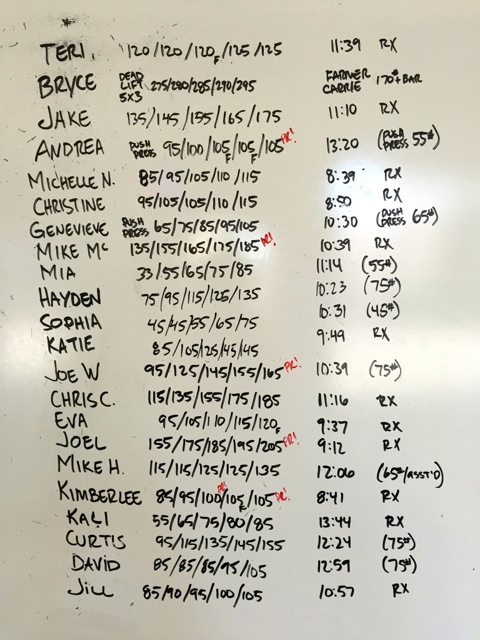 TERI 120/120/120F/125/125 11:39 RX
BRYCE DEAD LIFT 5X3 275/280/285/290/295 FARMER CARRIE 170# + BAR
JAKE 135/145/155/165/175 11:10 RX
ANDREA PUSH PRESS 95/100/105F/105F/105 PR! 13:20 (PUSH PRESS 55#)
MICHELLE N. 85/95/105/110/115 8:39 RX
CHRISTINE 95/105/105/110/115 8:50 RX
GENEVIEVE PUSH PRESS 65/75/85/95/105 10:30 (PUSH PRESS 65#)
MIKE Mc 135/155/165/175/185 PR! 10:39 RX
MIA 33/55/65/75/85 11:14 (55#)
HAYDEN 75/95/115/125/135 10:23 (75#)
SOPHIA 45/45/55/65/75 10:31 (45#)
KATIE 85/105/125/45/45 9:49 RX
JOE W 95/125/145/155/165 PR! 10:39 (75#)
CHRIS C. 115/135/155/175/185 11:16 RX
EVA 95/105/110/115/120F 9:37 RX
JOEL 155/175/185/195/205 PR! 9:12 RX
MIKE H. 115/115/125/125/135 12:06 (65#/ASST'D)
KIMBERLEE 85/95/100 PR!/105F/105 PR! 8:41 RX
KALI 55/65/75/80/85 13:44 RX
CURTIS 95/115/135/145/155 12:24 (75#)
DAVID 85/85/85/95/105 12:59 (75#)
JILL 85/90/95/100/105 10:57 RX